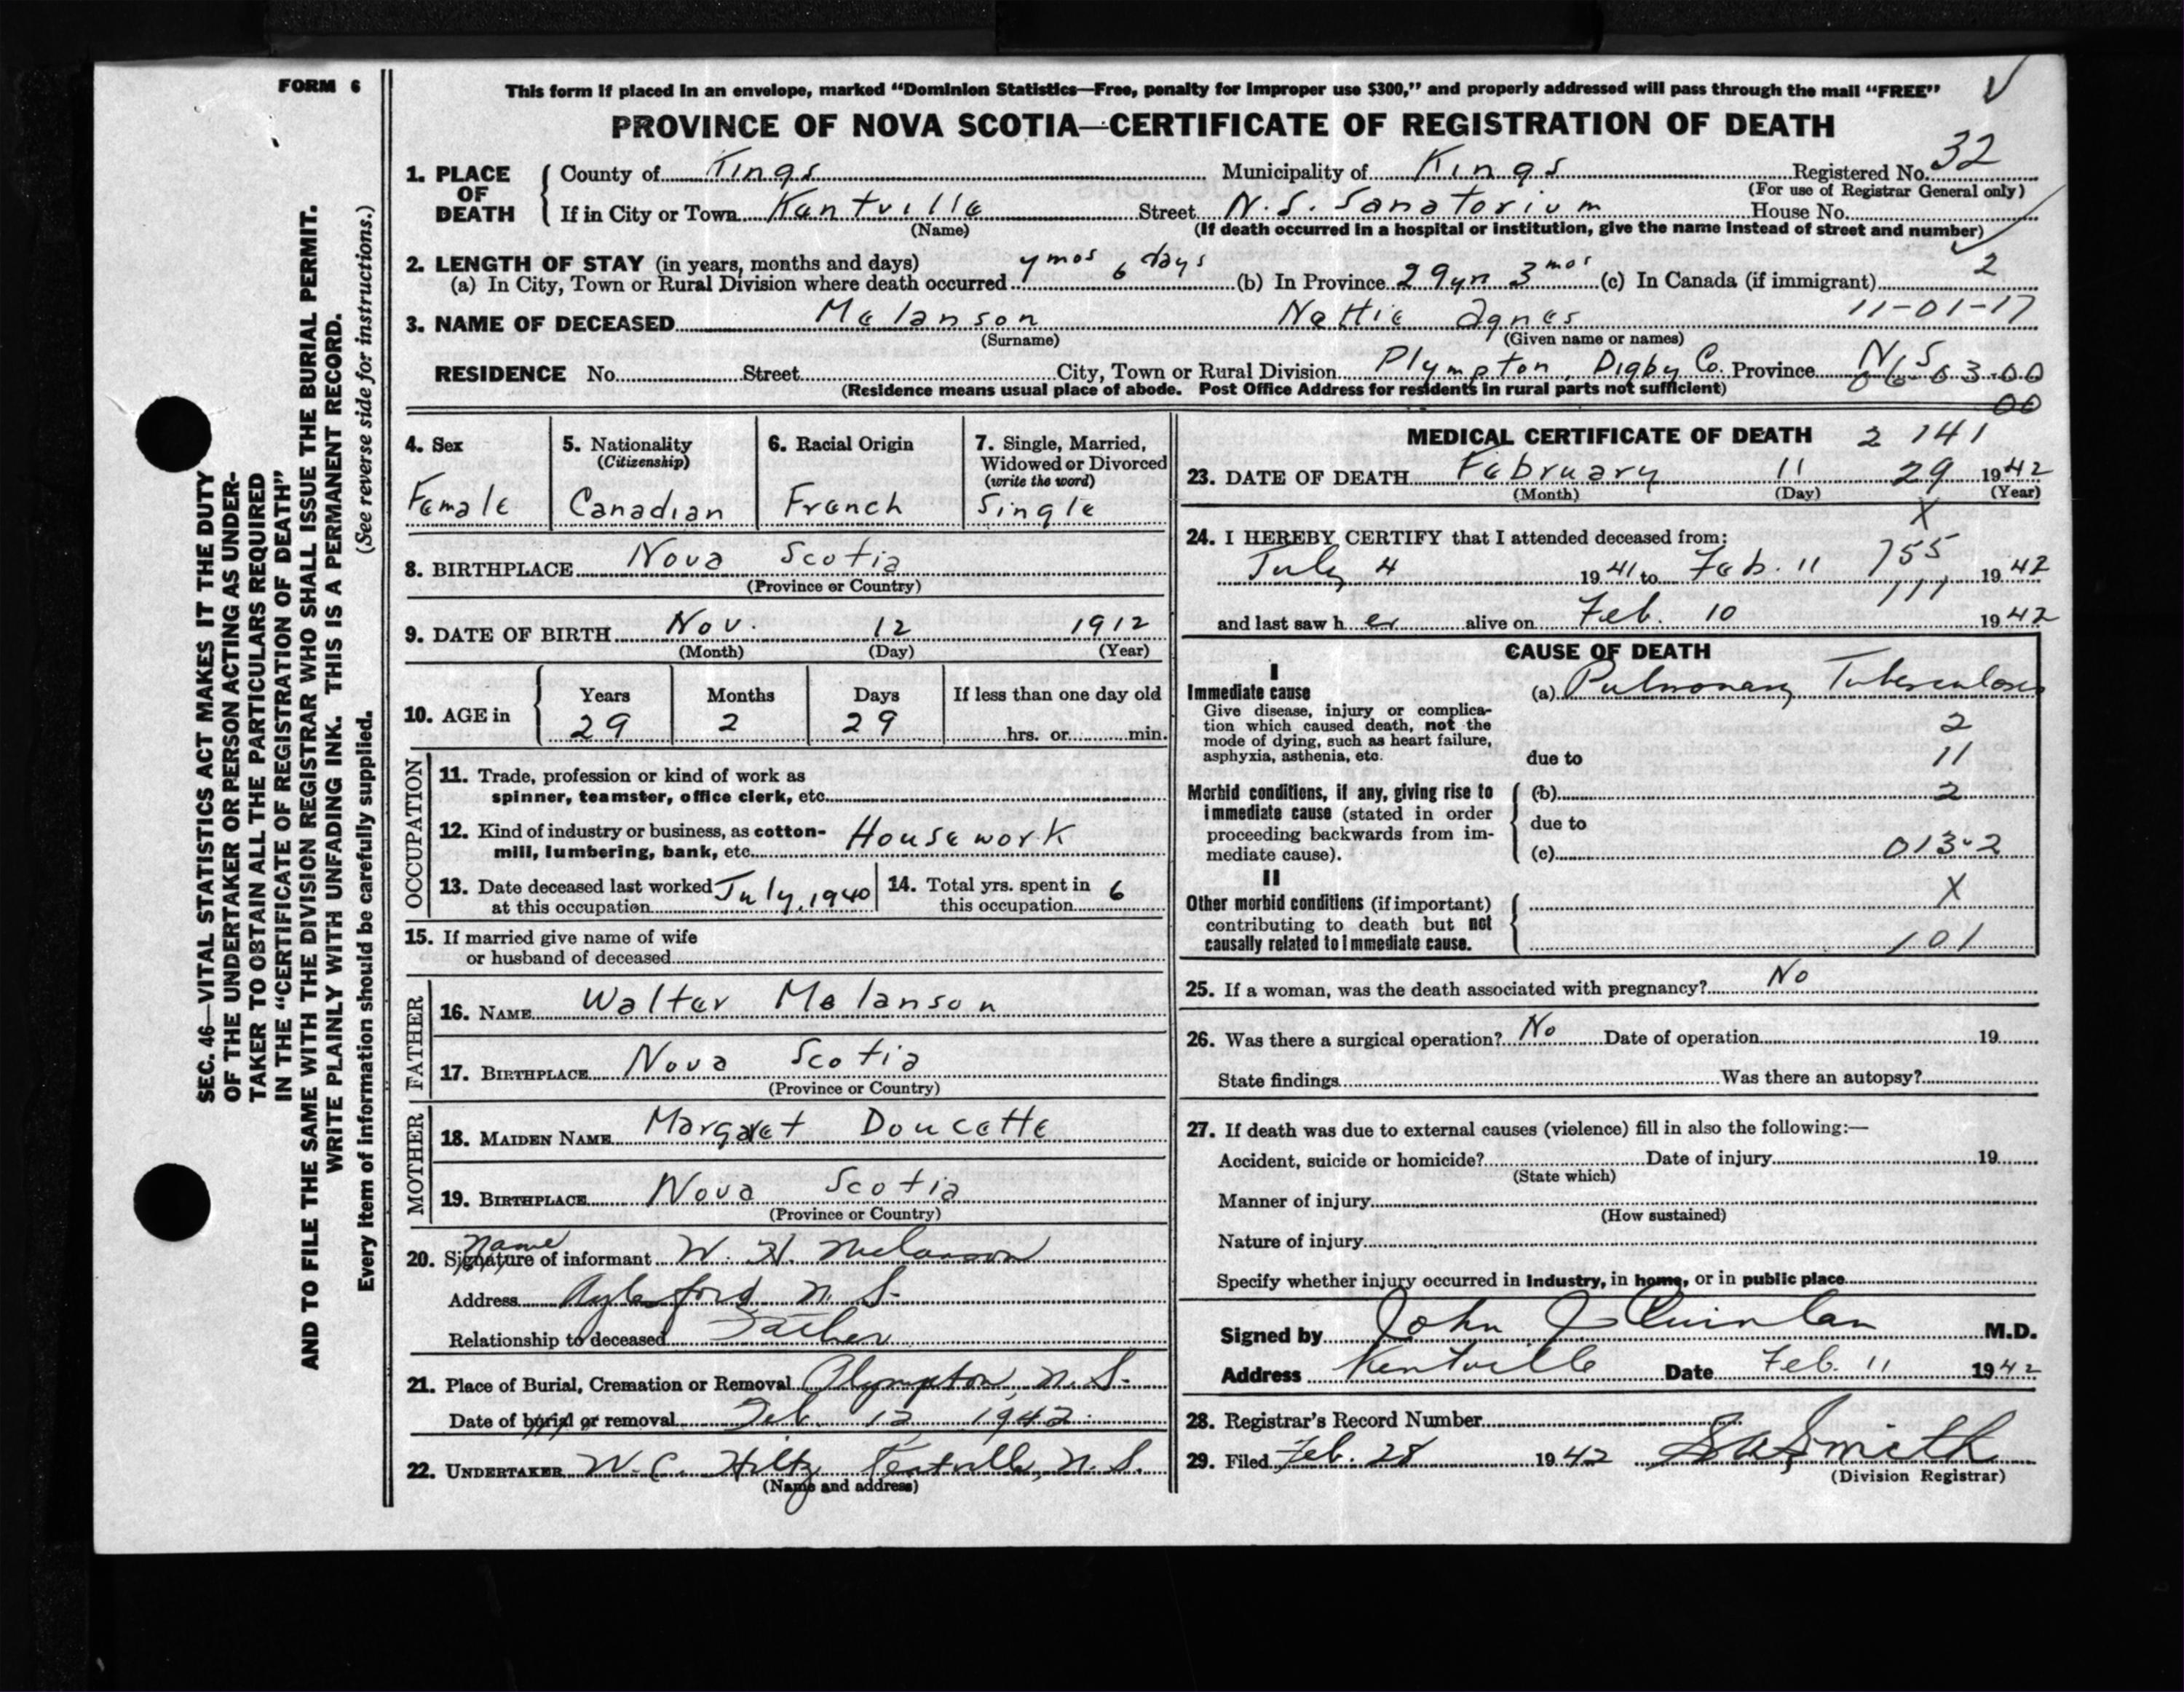 FORM 6
This form if placed in an envelope, marked "Dominion Statistics—Free, penalty for improper use $300," and properly addressed will pass through the mail "FREE"
PROVINCE OF NOVA SCOTIA—CERTIFICATE OF REGISTRATION OF DEATH
SEC. 46—VITAL STATISTICS ACT MAKES IT THE DUTY
OF THE UNDERTAKER OR PERSON ACTING AS UNDER-
TAKER TO OBTAIN ALL THE PARTICULARS REQUIRED
IN THE "CERTIFICATE OF REGISTRATION OF DEATH"
AND TO FILE THE SAME WITH THE DIVISION REGISTRAR WHO SHALL ISSUE THE BURIAL PERMIT.
WRITE PLAINLY WITH UNFADING INK. THIS IS A PERMANENT RECORD.
Every item of information should be carefully supplied. (See reverse side for instructions.)
1. PLACE OF DEATH
County of Kings Municipality of Kings Registered No. 32
(For use of Registrar General only)
If in City or Town Kentville Street N.S. Sanatorium House No.
(Name) (If death occurred in a hospital or institution, give the name instead of street and number)
2. LENGTH OF STAY (in years, months and days)
(a) In City, Town or Rural Division where death occurred mos 6 days (b) In Province 29 yrs 3 mos (c) In Canada (if immigrant) 2
11-01-17
3. NAME OF DECEASED Melanson Nettie Agnes
(Surname) (Given name or names)
RESIDENCE No. Street City, Town or Rural Division Plympton, Digby Co. Province N.S.
06-03-00
(Residence means usual place of abode. Post Office Address for residents in rural parts not sufficient)
00
4. Sex
Female
5. Nationality
(Citizenship)
Canadian
6. Racial Origin
French
7. Single, Married,
Widowed or Divorced
(write the word)
Single
8. BIRTHPLACE Nova Scotia
(Province or Country)
9. DATE OF BIRTH Nov. 12 1912
(Month) (Day) (Year)
10. AGE in
Years Months Days If less than one day old
29 2 29 hrs. or min.
OCCUPATION
11. Trade, profession or kind of work as
spinner, teamster, office clerk, etc.
12. Kind of industry or business, as cotton-
mill, lumbering, bank, etc. Housework
13. Date deceased last worked
at this occupation July, 1940
14. Total yrs. spent in
this occupation 6
15. If married give name of wife
or husband of deceased
FATHER
16. NAME Walter Melanson
17. BIRTHPLACE Nova Scotia
(Province or Country)
MOTHER
18. MAIDEN NAME Margaret Doucette
19. BIRTHPLACE Nova Scotia
(Province or Country)
name
20. Signature of informant W. H. Melanson
Address Aylesford N. S.
Relationship to deceased Father
21. Place of Burial, Cremation or Removal Plympton, N. S.
Date of burial or removal Feb. 12 1942
22. UNDERTAKER W. C. Hiltz Kentville, N. S.
(Name and address)
MEDICAL CERTIFICATE OF DEATH 2 141
23. DATE OF DEATH February 11 29 1942
(Month) (Day) (Year)
X
24. I HEREBY CERTIFY that I attended deceased from:
July 4 1941 to Feb. 11 755 1942
111
and last saw her alive on Feb. 10 1942
CAUSE OF DEATH
I
Immediate cause
Give disease, injury or complica-
tion which caused death, not the
mode of dying, such as heart failure,
asphyxia, asthenia, etc.
(a) Pulmonary Tuberculosis
2
due to 11
Morbid conditions, if any, giving rise to
immediate cause (stated in order
proceeding backwards from im-
mediate cause).
(b) 2
due to
(c) 013-2
II
Other morbid conditions (if important)
contributing to death but not
causally related to immediate cause.
X
101
25. If a woman, was the death associated with pregnancy? No
26. Was there a surgical operation? No Date of operation 19
State findings Was there an autopsy?
27. If death was due to external causes (violence) fill in also the following:—
Accident, suicide or homicide? Date of injury 19
(State which)
Manner of injury
(How sustained)
Nature of injury
Specify whether injury occurred in industry, in home, or in public place
Signed by John J Quinlan M.D.
Address Kentville Date Feb. 11 1942
28. Registrar's Record Number
29. Filed Feb. 28 1942 Smith
(Division Registrar)